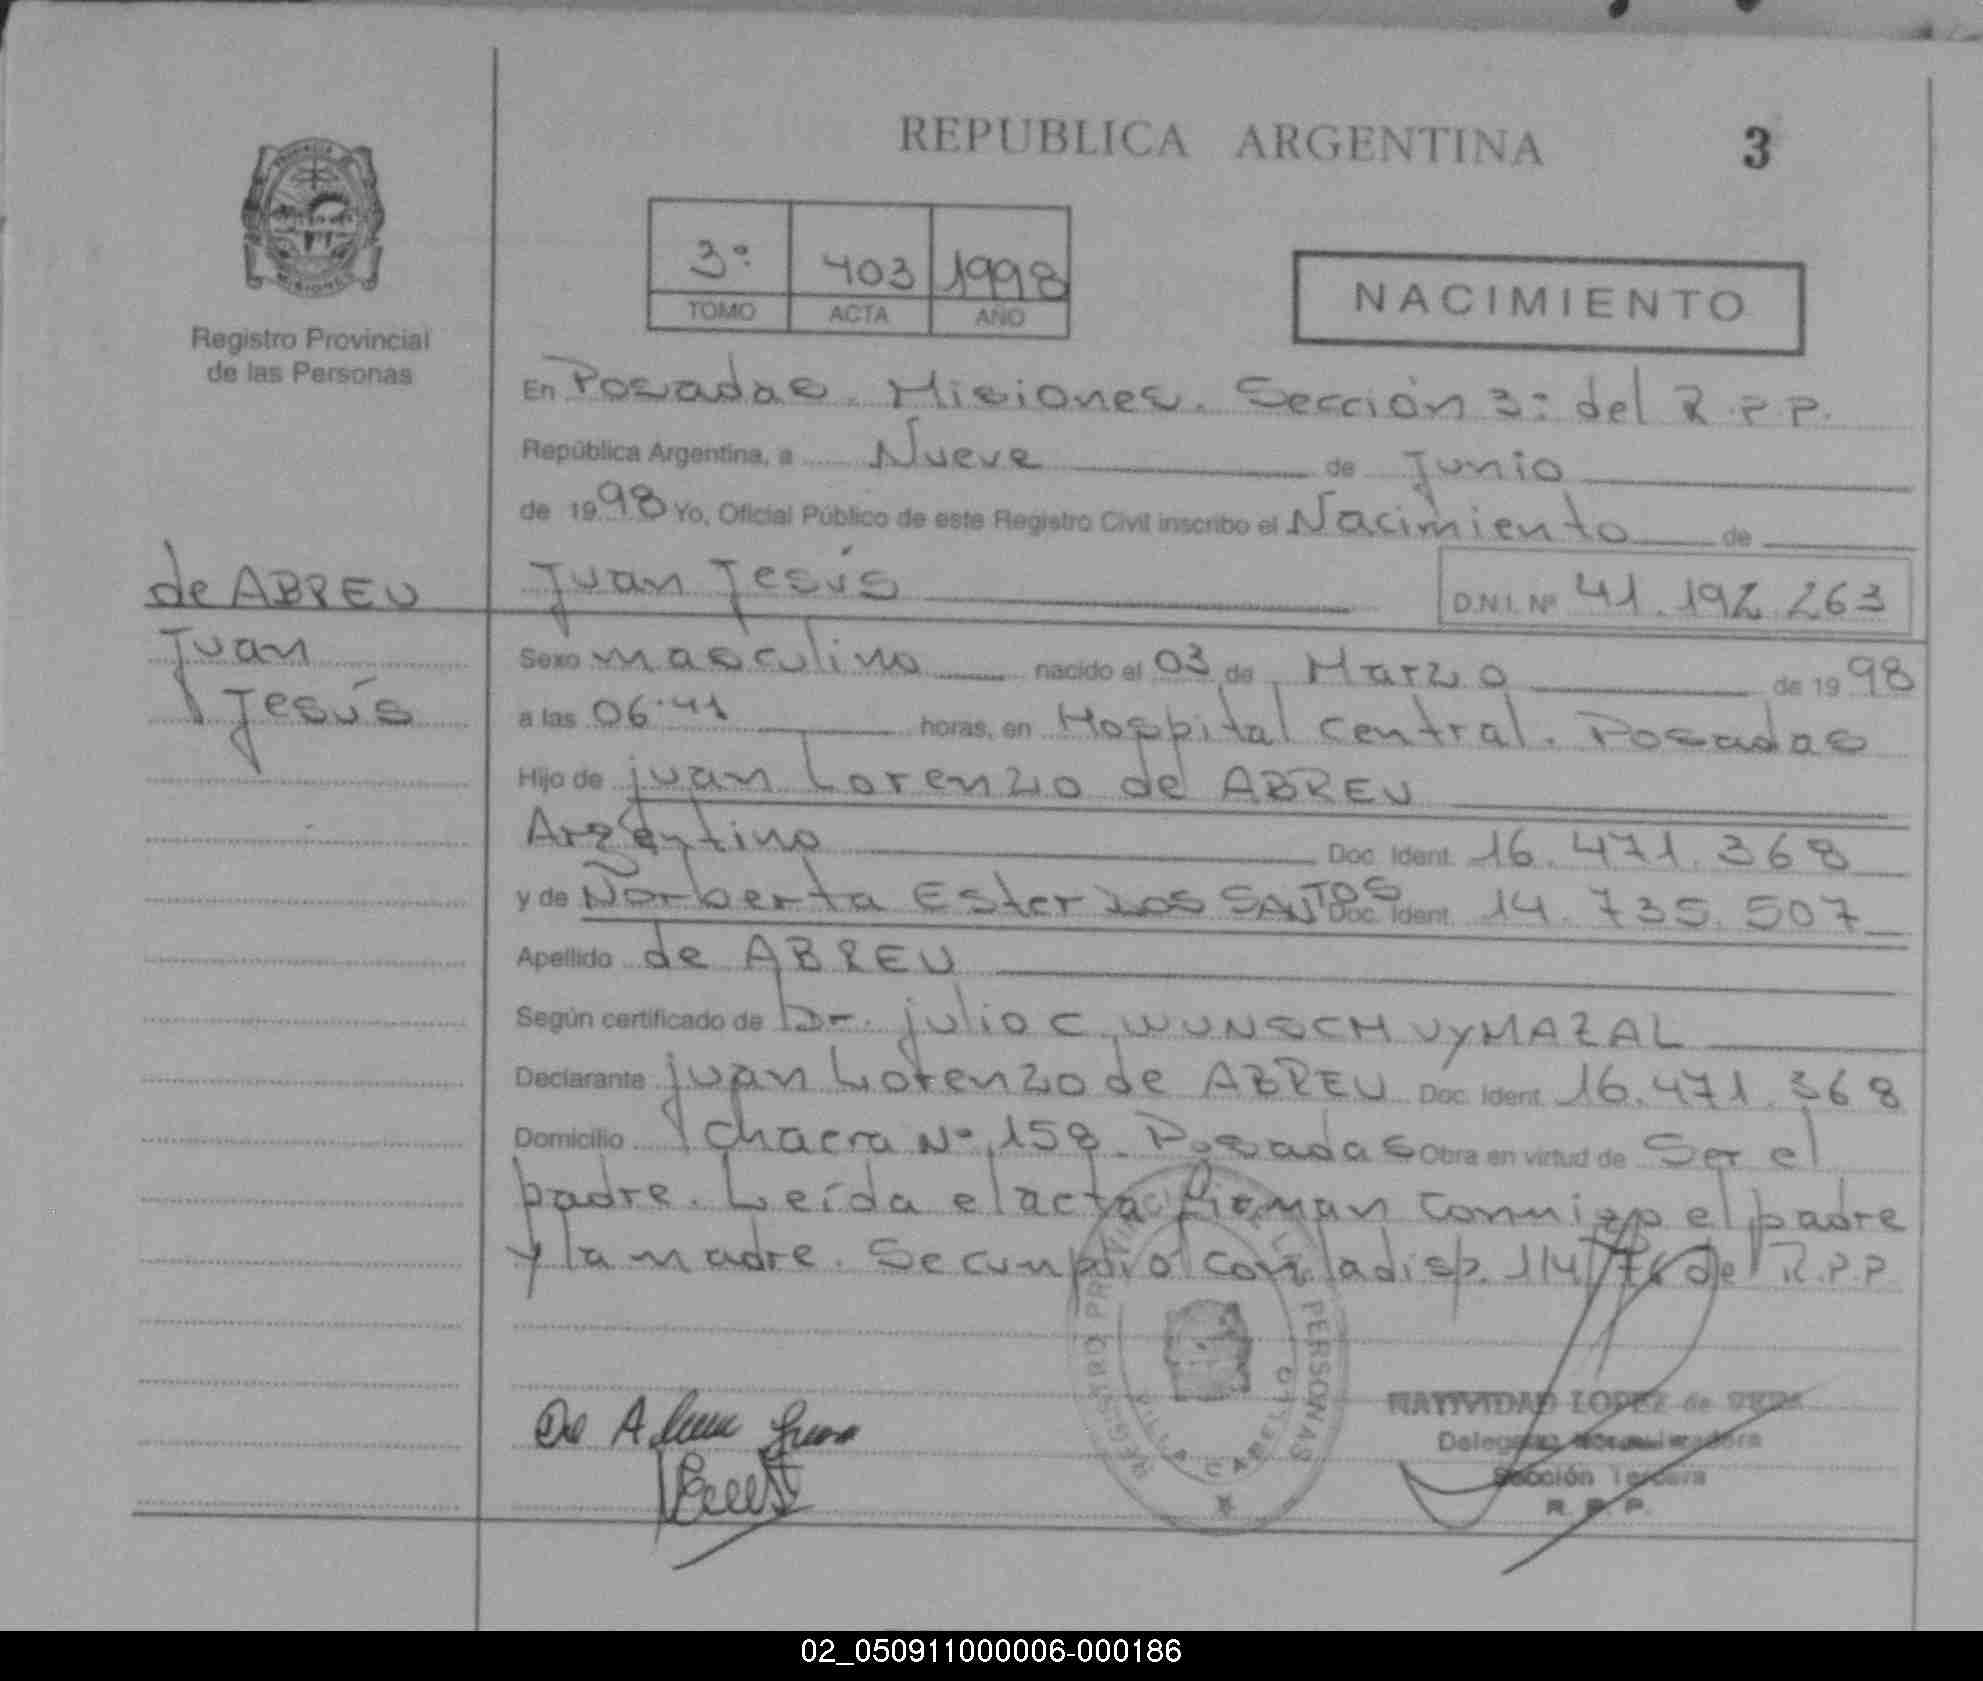 REPUBLICA ARGENTINA 3
Registro Provincial
de las Personas
3º 403 1998
TOMO ACTA AÑO
NACIMIENTO
En Posadas. Misiones. Sección 3º del R.P.P.
República Argentina, a Nueve de Junio
de 1998 Yo, Oficial Público de este Registro Civil inscribo el Nacimiento de
Juan Jesús D.N.I. Nº 41.192.263
de ABREU
Juan
Jesús
Sexo masculino nacido el 03 de Marzo de 1998
a las 06.41 horas, en Hospital Central. Posadas
Hijo de juan Lorenzo de ABREU
Argentino Doc. Ident. 16.471.368
y de Norberta Ester DOS SANTOS Doc. Ident. 14.735.507
Apellido de ABREU
Según certificado de Dr. julio C WUNSCH VYMAZAL
Declarante juan Lorenzo de ABREU Doc. Ident. 16.471.368
Domicilio Chacra Nº 158. Posadas Obra en virtud de Ser el
padre. Leída el acta firman conmigo el padre
y la madre. Se cumplió con la disp. 114/76 de R.P.P.
REGISTRO PROVINCIAL DE LAS PERSONAS
VILLA CABELLO
De Abreu Juan
NATIVIDAD LOPEZ de
Delegada Normalizadora
Sección Tercera
R. P. P.
02_050911000006-000186